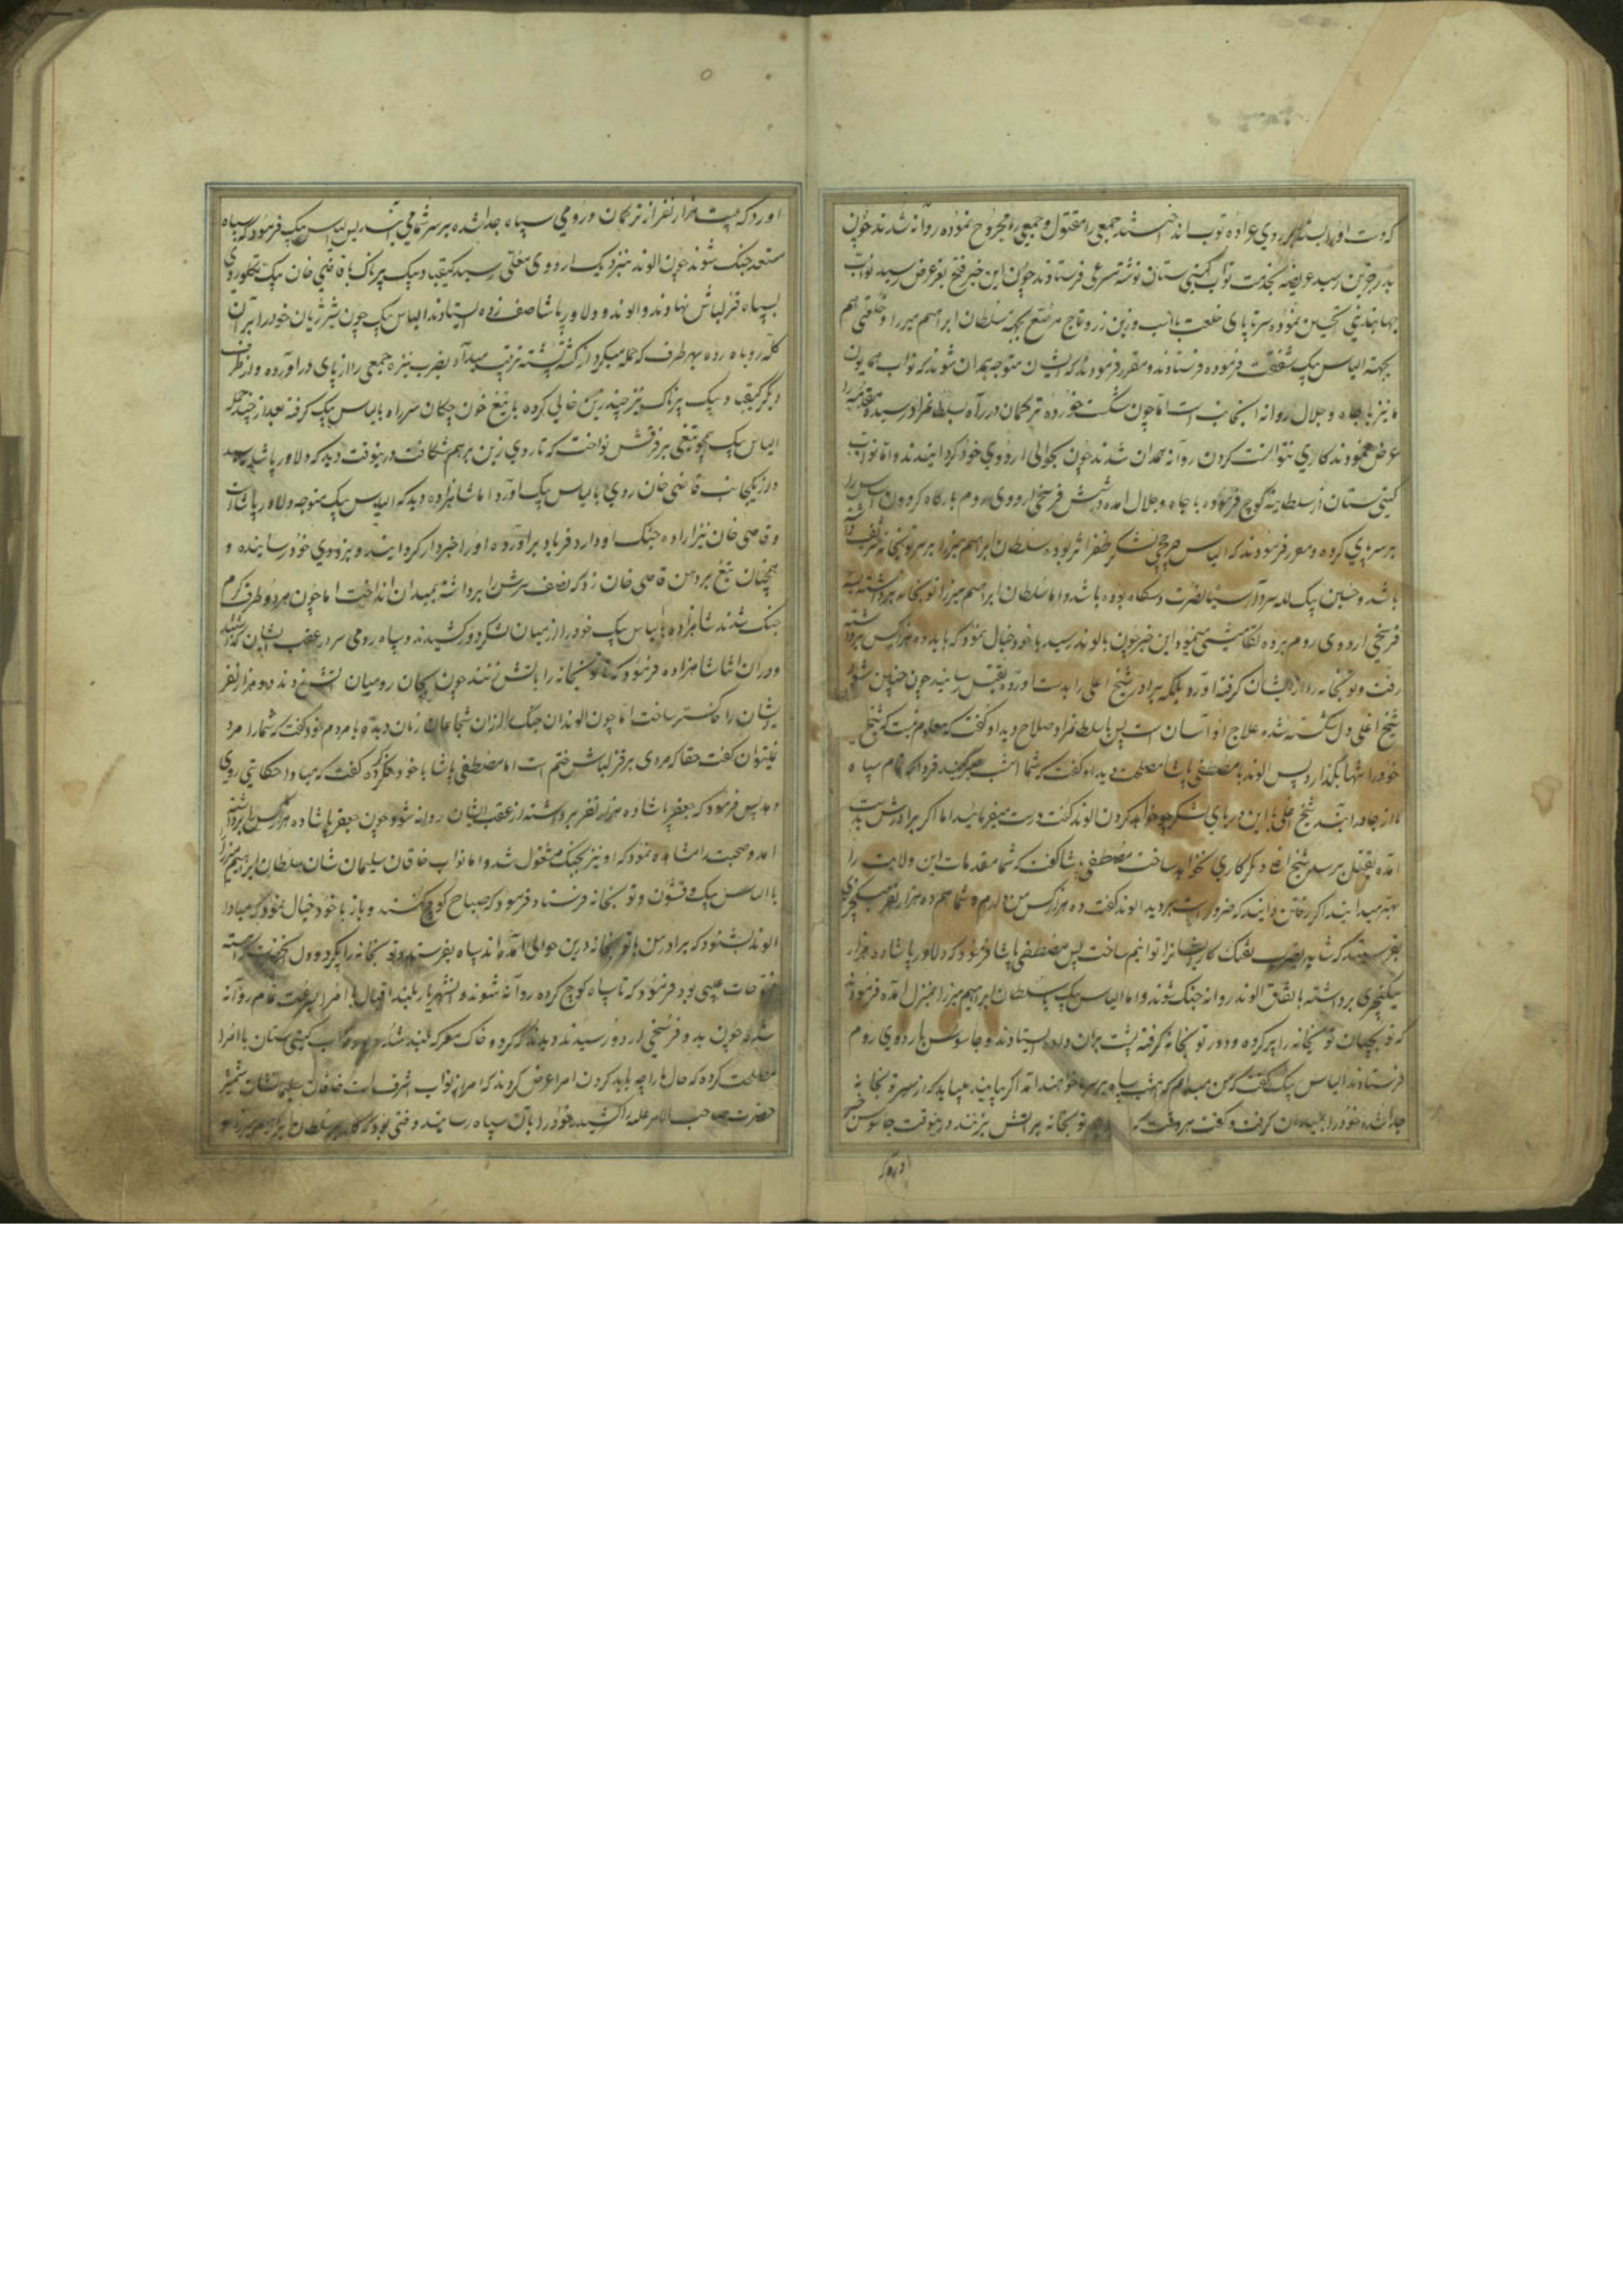 که دست او را بسته بر روی عراده توپ انداختند جمعی را مقتول و جمعی را مجروح نموده روانه شدند چون
بدرجزین رسید عریضه بخدمت نواب گیتی ستان نوشته فرستادند چون این خبر فتح بعرض رسید نواب
جهانبانی تحسین نموده سرتاپای خلعت با اسب و زین زر و تاج مرصع بجهة سلطان ابراهیم میرزا و خلعتی هم
بجهة الیاس بیک شفقت فرموده فرستادند و مقرر فرمودند که ایشان متوجه همدان شوند که نواب همایون
ما نیز با جاه و جلال روانه انجانب است اما چون شکست خورده ترکمان در راه بسلطانمراد رسیده مقدمه را
عرض نمودند کاری نتوانست کردن روانه همدان شدند چون بحوالی اردوی خود کردانیدند و اما نواب
کیتی ستان از سلطانیه کوچ فرموده با جاه و جلال امده در شش فرسخی اردوی روم بارگاه گردون اساس را
بر سر پای کرده و مقرر فرمودند که الیاس چرخچی لشکر ظفر اثر بوده سلطان ابراهیم میرزا بر سر توپخانه
باشد و حسین بیک لله سردار سپاه نصرت دستگاه بوده باشد و اما سلطان ابراهیم میرزا توپخانه برداشته
فرسخی اردوی روم برده این خبر چون بالوند رسید با خود خیال نمود که باید ده هزار کس برداشته
رفت و توپخانه را از ایشان گرفته آورد بلکه برادر شیخ اغلی را بدست آورده بقتل رسانید چون چنین شود
شیخ اغلی دل شکسته شده علاج او آسان است پس با سلطانمراد صلاح دید او گفت که معلوم نیست که شیخ
خود را تنها بگذارد پس الوند با مصطفی پاشا مصلحت دید او گفت که شما امشب فردا که تمام سپاه
ما از جا درآیند شیخ اغلی با این دریای لشکر چه خواهد کردن الوند گفت درست میفرمائید اما اگر برادرش بدست
امده بقتل برسد شیخ اغلی دیگر کاری نخواهد ساخت مصطفی پاشا گفت که شما مقدمات این ولایت را
بهتر میدانید اگر رفتن دانید که ضرور است بروید الوند گفت ده هزار کس من دارم و شما هم ده هزار نفر ینکچری
بفرستید که شاید بضرب تفنک کار ایشانرا توانیم ساخت پس مصطفی پاشا فرمود که دلاور پاشا ده هزار
ینکچری برداشته باتفاق الوند روانه جنک شوند و اما الیاس بیک با سلطان ابراهیم میرزا بمنزل آمده فرمود
که توپچیان توپخانه را پر کرده و دور توپخانه گرفته پشت بران داده ایستادند و جاسوس باردوی روم
فرستادند الیاس بیک گفت که من میدانم که امشب سپاه بر سر ما خواهند آمد اگر بیایند میباید که از سر توپخانه
جدا شده خود را بمیدان گرفت و گفت هر وقت که توپخانه را آتش بزنند درینوقت جاسوس خبر
آورد که
اورد که بیست هزار نفر از ترکمان و رومی سپاه جدا شده بر سر شما می آیند پس الیاس بیک فرمود که سپاه
مستعد جنک شوند چون الوند نیز نزدیک اردوی معلی رسید کیقباد بیک پرناک با قاضی خان بیک تکلو روی
بسپاه قزلباش نهادند و الوند و دلاور پاشا صف زده ایستادند الیاس بیک چون شیر ژیان خود را بر آن
کله روباه زده بهر طرف که حمله میکرد از کشته پشته ترتیب میداد بضرب نیزه جمعی را از پای درآورده و از طرف
دیگر کیقباد بیک پرناک نیز چندین زین خالی کرده با تیغ خون چکان سر راه بالیاس بیک گرفته بعد از چند حمله
الیاس بیک همچو تیغی بر فرقش نواخت که تا روی زین بر هم شکافت درینوقت دید که دلاور پاشا رسید
و از یکجانب قاضی خان روی بالیاس بیک آورد اما شاهزاده دید که الیاس بیک متوجه دلاور پاشا است
و قاضی خان نیز اراده جنک او دارد فریاد برآورده او را خبردار کردانید و بزودی خود رسانیده و
همچنان تیغ بر دهن قاضی خان زد که نصف سرش را برداشته بمیدان انداخت اما چون هر دو طرف گرم
جنک شدند شاهزاده با الیاس بیک خود را از میان لشکر دور کشیدند و سپاه رومی سر در عقب ایشان گذاشتند
و در ان اثنا شاهزاده فرمود که توپخانه را باتش زنند چون توپچیان رومیان آتش زدند دو هزار نفر
ایشان را خاکستر ساخت اما چون الوند ان جنک از ان شجاعان زمان دید با مردم خود گفت که شما را مرد
نمیتوان گفت حقا که مردی بر قزلباش ختم است اما مصطفی پاشا با خود فکر کرده گفت که مبادا حکایتی روی
دهد پس فرمود که جعفر پاشا ده هزار نفر برداشته از عقب ایشان روانه شود چون جعفر پاشا ده هزار کس را برداشته
امد و صحبت را مشاهده نمود که او نیز بجنک مشغول شد و اما نواب خاقان سلیمان شان سلطان ابراهیم میرزا
با الیاس بیک و قشون و توپخانه فرستاد فرمود که صباح کوچ کنند و باز با خود خیال نمود که مبادا
الوند بشنود که برادر من با توپخانه درین حوالی آمده اند سپاه بفرستد و توپخانه را بگیرد و دل انحضرت
فتوحات غیبی بود فرمود که تا سپاه کوچ کرده روانه شوند و انشهریار بلند اقبال با امرا بسرعت تمام روانه
شده چون بدو فرسخی اردو رسیدند دیدند که گرد و خاک معرکه بلند شده نواب گیتی ستان با امرا
مصلحت کرده که حال ما را چه باید کردن امرا عرض کردند که امر از نواب اشرف است خاقان سلیمانشان شمشیر
حضرت صاحب الامر علیه را کشیده خود را بآن سپاه رسانید و وقتی بود که کار بر سلطان ابراهیم میرزا و